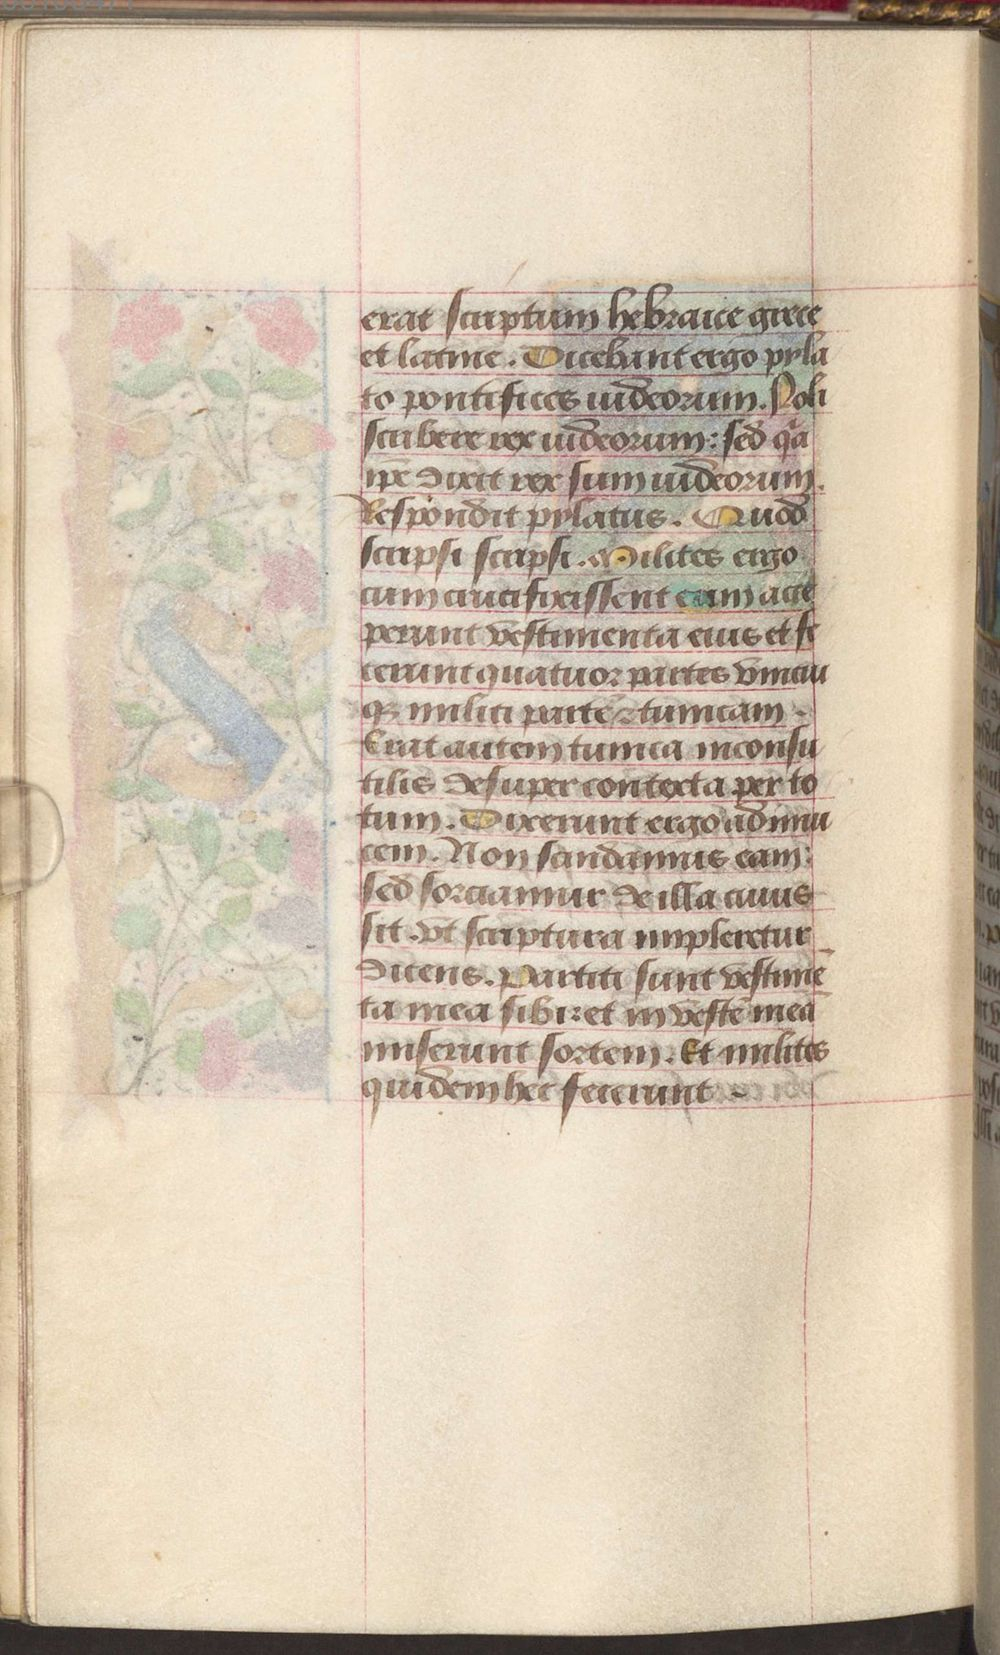 erat scriptum hebraice grece
et latine. Dicebant ergo pyla
to pontifices iudeorum. Noli
scribere rex iudeorum: sed qa
ipe dixit rex sum iudeorum.
Respondit pylatus. Quod
scripsi scripsi. Milites ergo
cum crucifixissent eum acce
perunt vestimenta eius et fe
cerunt quatuor partes vnicui
qꝫ militi parte ⁊ tunicam.
Erat autem tunica inconsu
tilis desuper contexta per to
tum. Dixerunt ergo ad inui
cem. Non scindamus eam:
sed sorciamur de illa cuius
sit. vt scriptura impleretur
dicens. Partiti sunt vestimē
ta mea sibi: et in veste mea
miserunt sortem. Et milites
quidem hec fecerunt